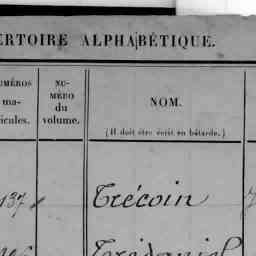 ERTOIRE ALPHABÉTIQUE.
UMÉROS
ma-
icules.
NU-
MÉRO
du
volume.
NOM.
(Il doit être écrit en bâtarde.)
137
Trécoin
Tridaniel